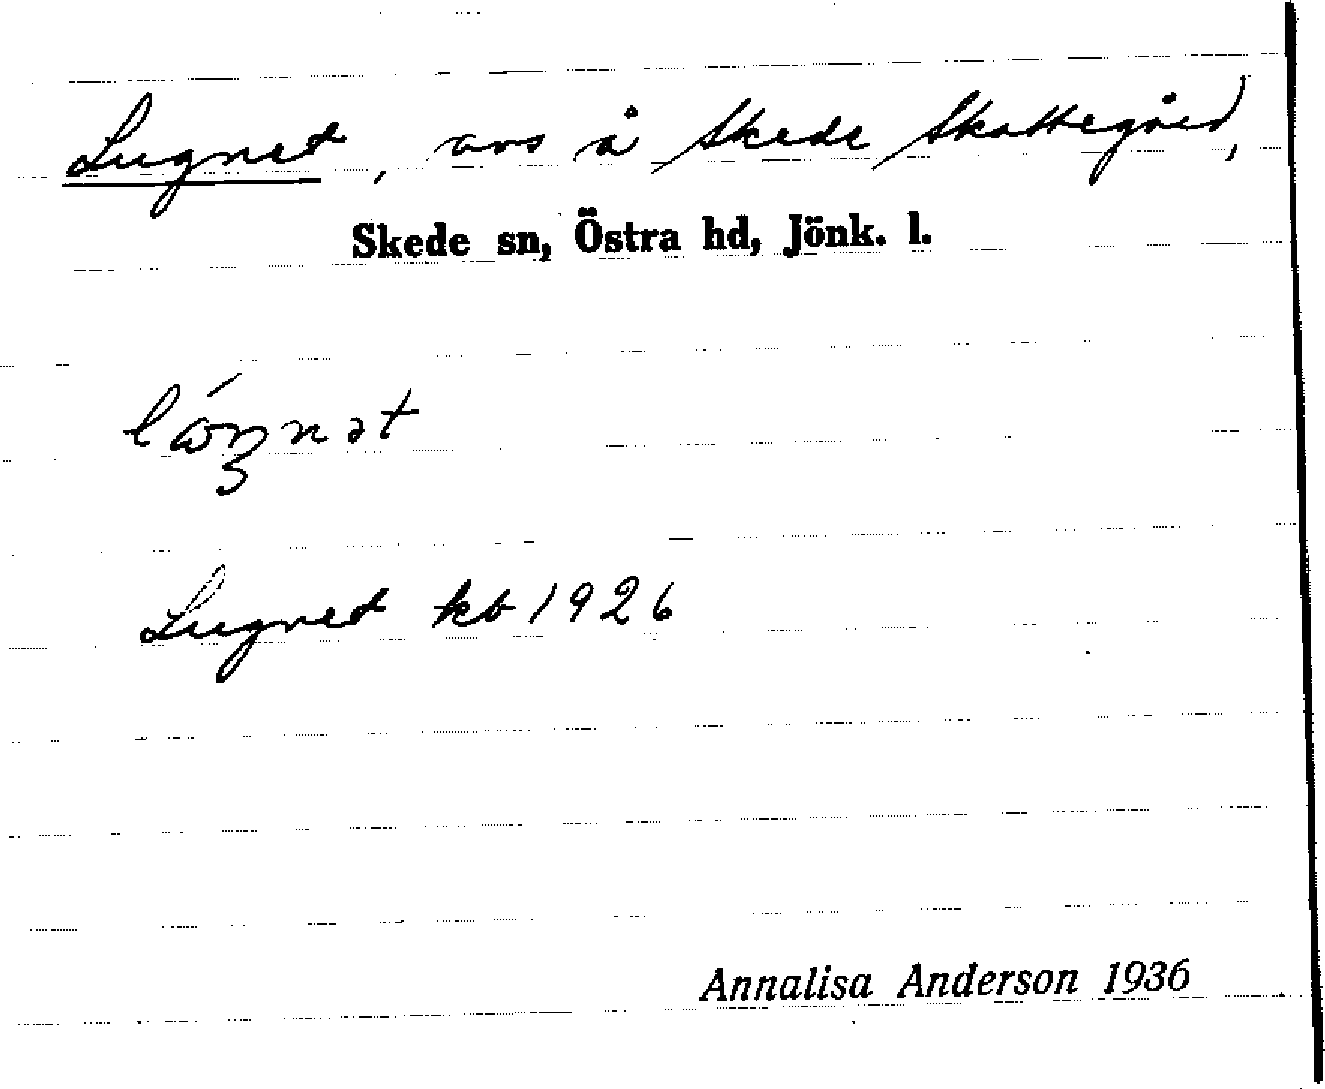 Lugnet, avs å Skede Skattegård,
Skede sn, Östra hd, Jönk. l.
Lugnet kb 1926
Annalisa Anderson 1936